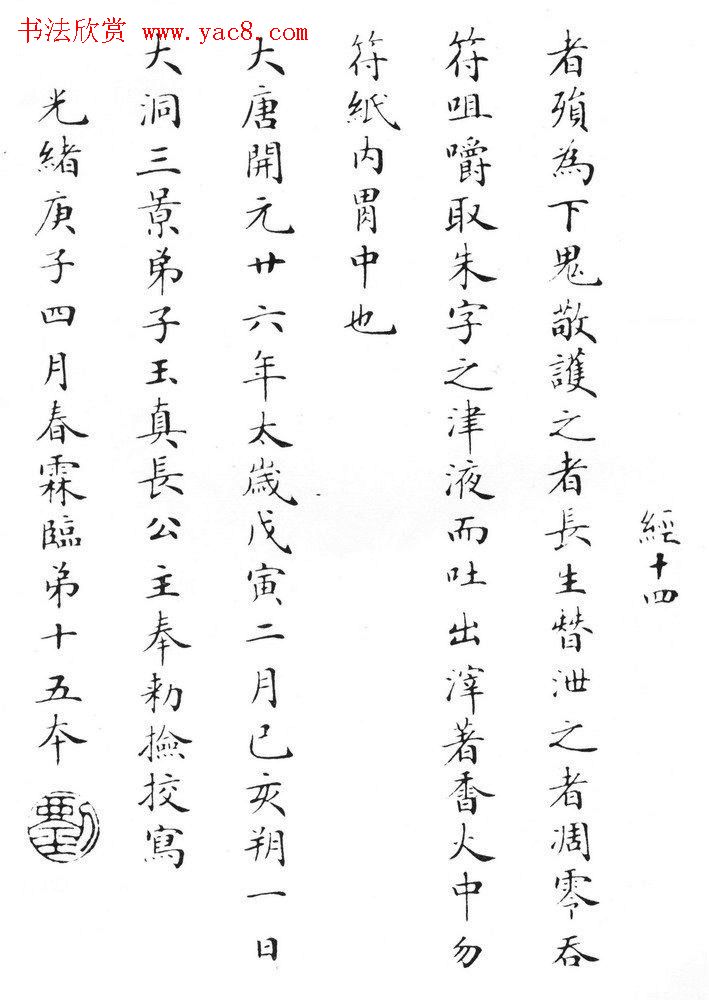 书法欣赏 www.yac8.com
經十四
者殞為下鬼敬護之者長生朁泄之者凋零吞
符咀嚼取朱字之津液而吐出滓著香火中勿
符紙内胃中也
大唐開元廿六年太歲戊寅二月己亥朔一日
大洞三景弟子玉真長公主奉勑撿挍寫
光緒庚子四月春霖臨弟十五本